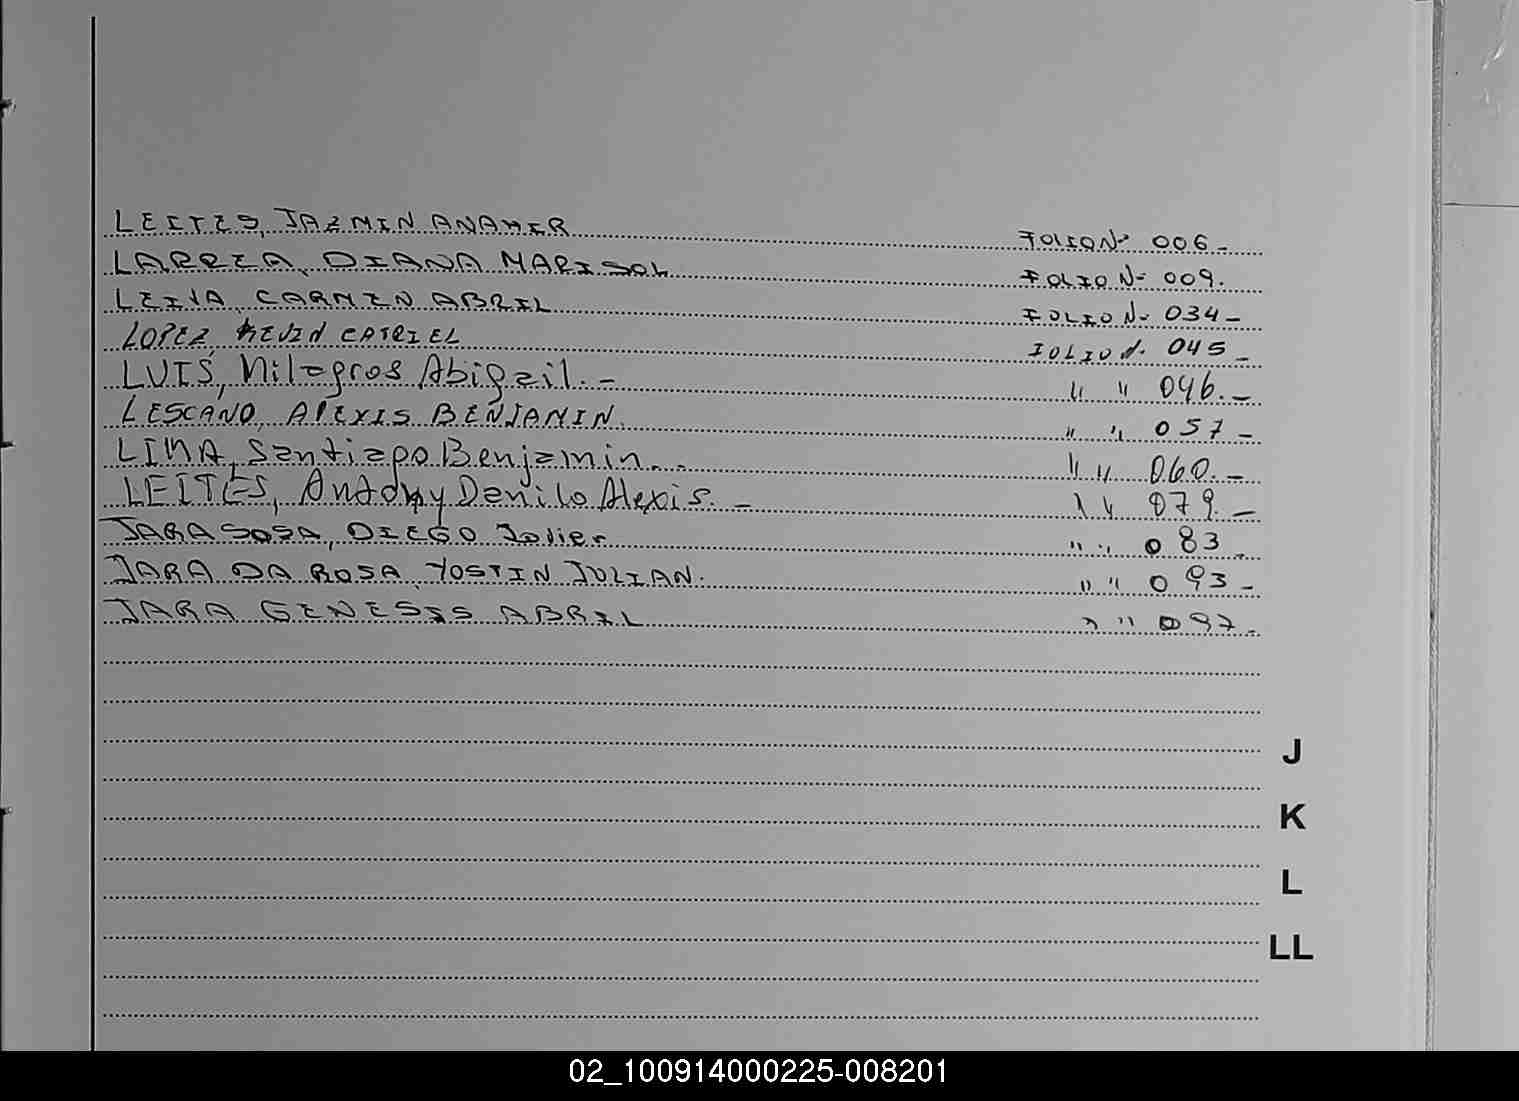 LEITES, JAZMIN ANAHIR FOLIO Nº 006-
LARREA, DIANA MARISOL FOLIO Nº 009.
LEIVA, CARMEN ABRIL FOLIO Nº 034-
LOPEZ, KEVIN CATRIEL FOLIO Nº 045-
LUIS, Milagros Abigail.- " " 046.-
LESCANO, ALEXIS BENJAMIN. " " 057-
LIMA, Santiago Benjamin.- " " 060.-
LEITES, Antony Danilo Alexis.- " " 079.-
JARA SOSA, DIEGO Javier " " 083-
JARA DA ROSA, YOSTIN JULIAN. " " 093-
JARA GENESIS ABRIL " " 097-
J
K
L
LL
02_100914000225-008201